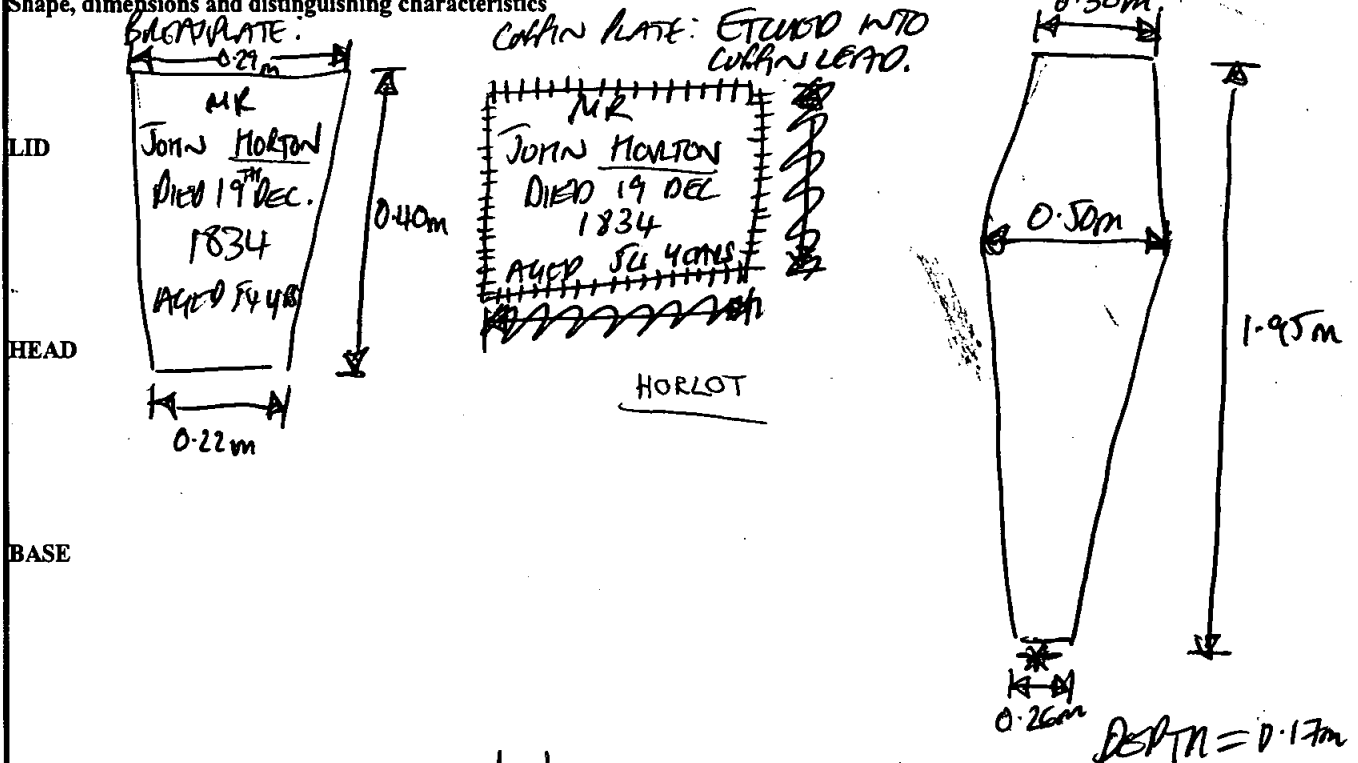 Shape, dimensions and distinguishing characteristics
BREASTPLATE:
0.29m
MR
JOHN HORTON
DIED 19TH DEC.
1834
AGED 54 YRS
0.40m
0.22m
COFFIN PLATE: ETCHED INTO
COFFIN LEAD.
MR
JOHN HORLTON
DIED 19 DEC
1834
AGED 54 YEARS
HORLOT
0.30m.
0.50m
1.95m
0.26m
DEPTH = 0.17m
LID
HEAD
BASE